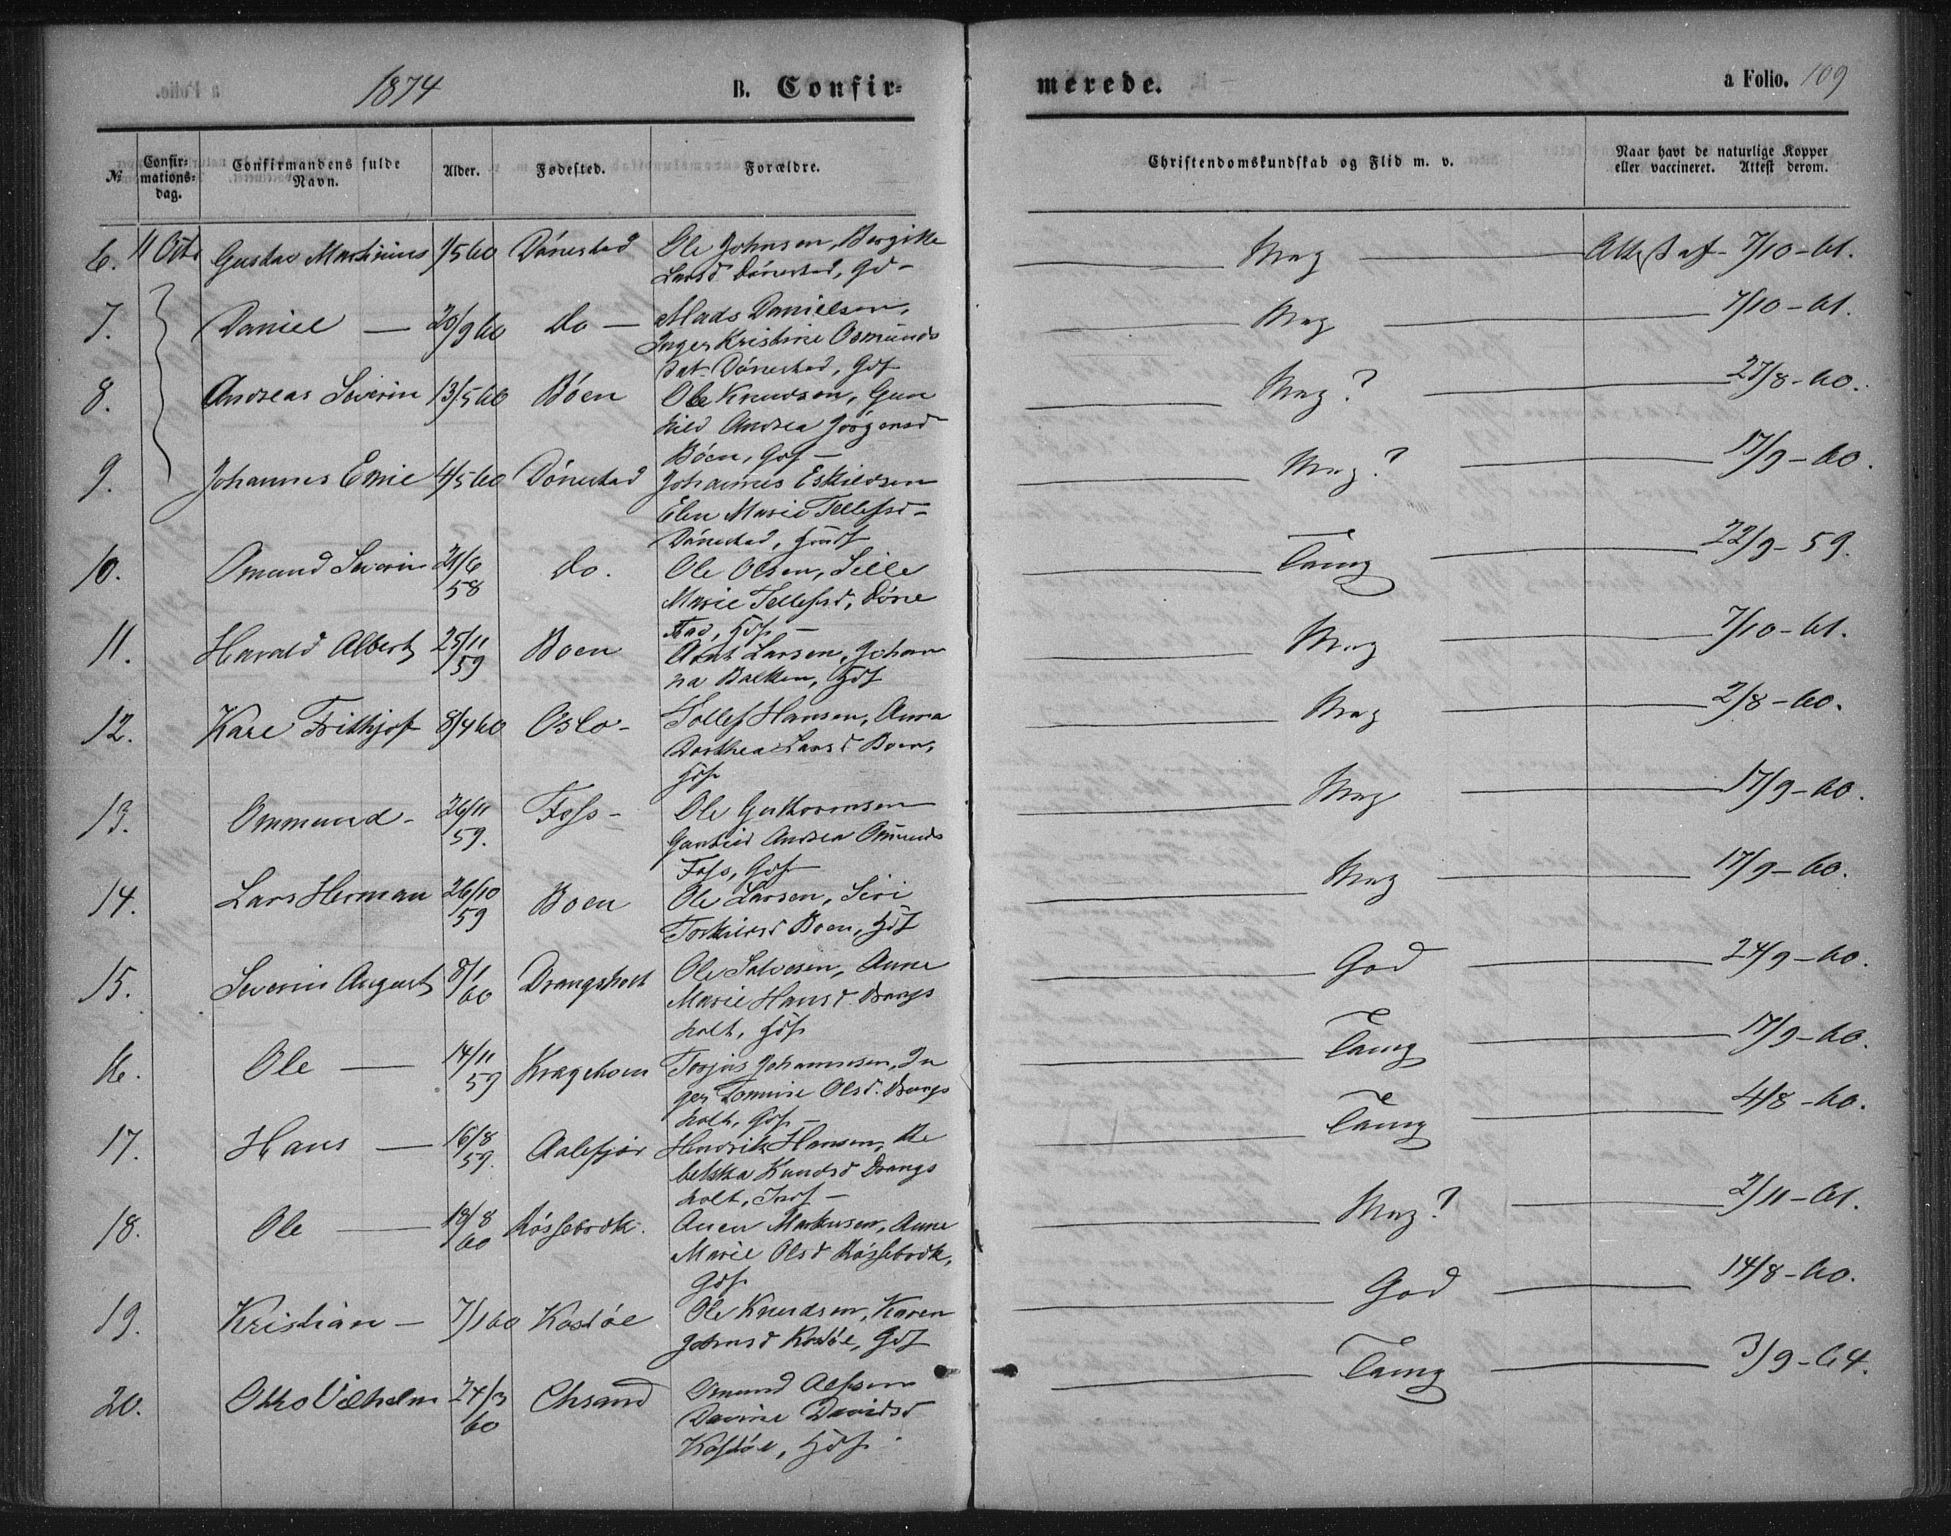 1874 B. Confir= merede. a Folio. 109
№ Confir=mations=dag. Confirmandens fulde Navn. Alder. Fødested. Forældre. Christendomskundskab og Flid m. v. Naar havt de naturlige Kopper eller vaccineret. Attest derom.
6. 11 Octr Gustav Martinius 1/5 60 Dönestad Ole Johnsen, Bergitte
Larsd. Dönestad, Gd- Meg Attest af 7/10-61.
7. Daniel — 20/9 60 Do — Mads Danielsen,
Inger Kristine Osmunds
dat. Dönestad, Gdf Meg 7/10-61.
8. Andreas Severin 13/5 60 Böen Ole Knudsen, Gun
hild Andrea Jörgensd
Böen, Gdf- Mg? 27/8-60.
9. Johannes Emil 4/5 60 Dönestad Johannes Eskildsen
Elen Marie Tellefsd-
Dönestad, Mg? 17/9-60.
10. Omund Severin 21/6 58 Do. Ole Olsen, Sille
Marie Tellefsd, Döne
stad, Hdf- Tamg 22/9-59.
11. Harald Albert 25/11 59 Boen Arnt Larsen, Johan
na Balken, Hdf Meg 7/10-61.
12. Kare Frithjof 8/4 60 Oslo- Tollef Hansen, Anna
Dorthea Larsd Boen,
Hdf Meg 2/8-60.
13. Ommund - 26/11 59. Foss- Ole Guthormsen
Gunhild Andrea Omunds
Foss, Gdf Meg 17/9-60.
14. Lars Herman 26/10 59 Boen Ole Larsen, Siri
Torkildsd Boen, Hdf Meg 17/9-60.
15. Severin August 8/1 60 Drangsholt Ole Salvesen, Anne
Marie Hansd. Drangs
holt, Hdf God 24/9-60.
16. Ole — 14/11 59 Krageholm Torjus Johannesen, In
ger Tomine Olsd. Drangs
holt, Gdf- Tamg 17/9-60.
17. Hans — 16/8 59. Aalefjær Hendrik Hansen, Re
bekka Knudsd Drangs
holt, Indf- Tamg 4/8-60.
18. Ole — 18/8 60 Rössebrokk. Anen Markusen, Anne
Marie Olsd Rössebrokk,
Gdf Mg? 2/11-61.
19. Kristian — 7/1 60 Kostöl Ole Knudsen, Karen
Johnsd Kostöl, Gdf God 14/8-60.
20. Otto Vilhelm 24/3 60 Chsand Omund Alfsen
Davine Davidsd
Kostöl, Hdf. Tamg 3/9-64.